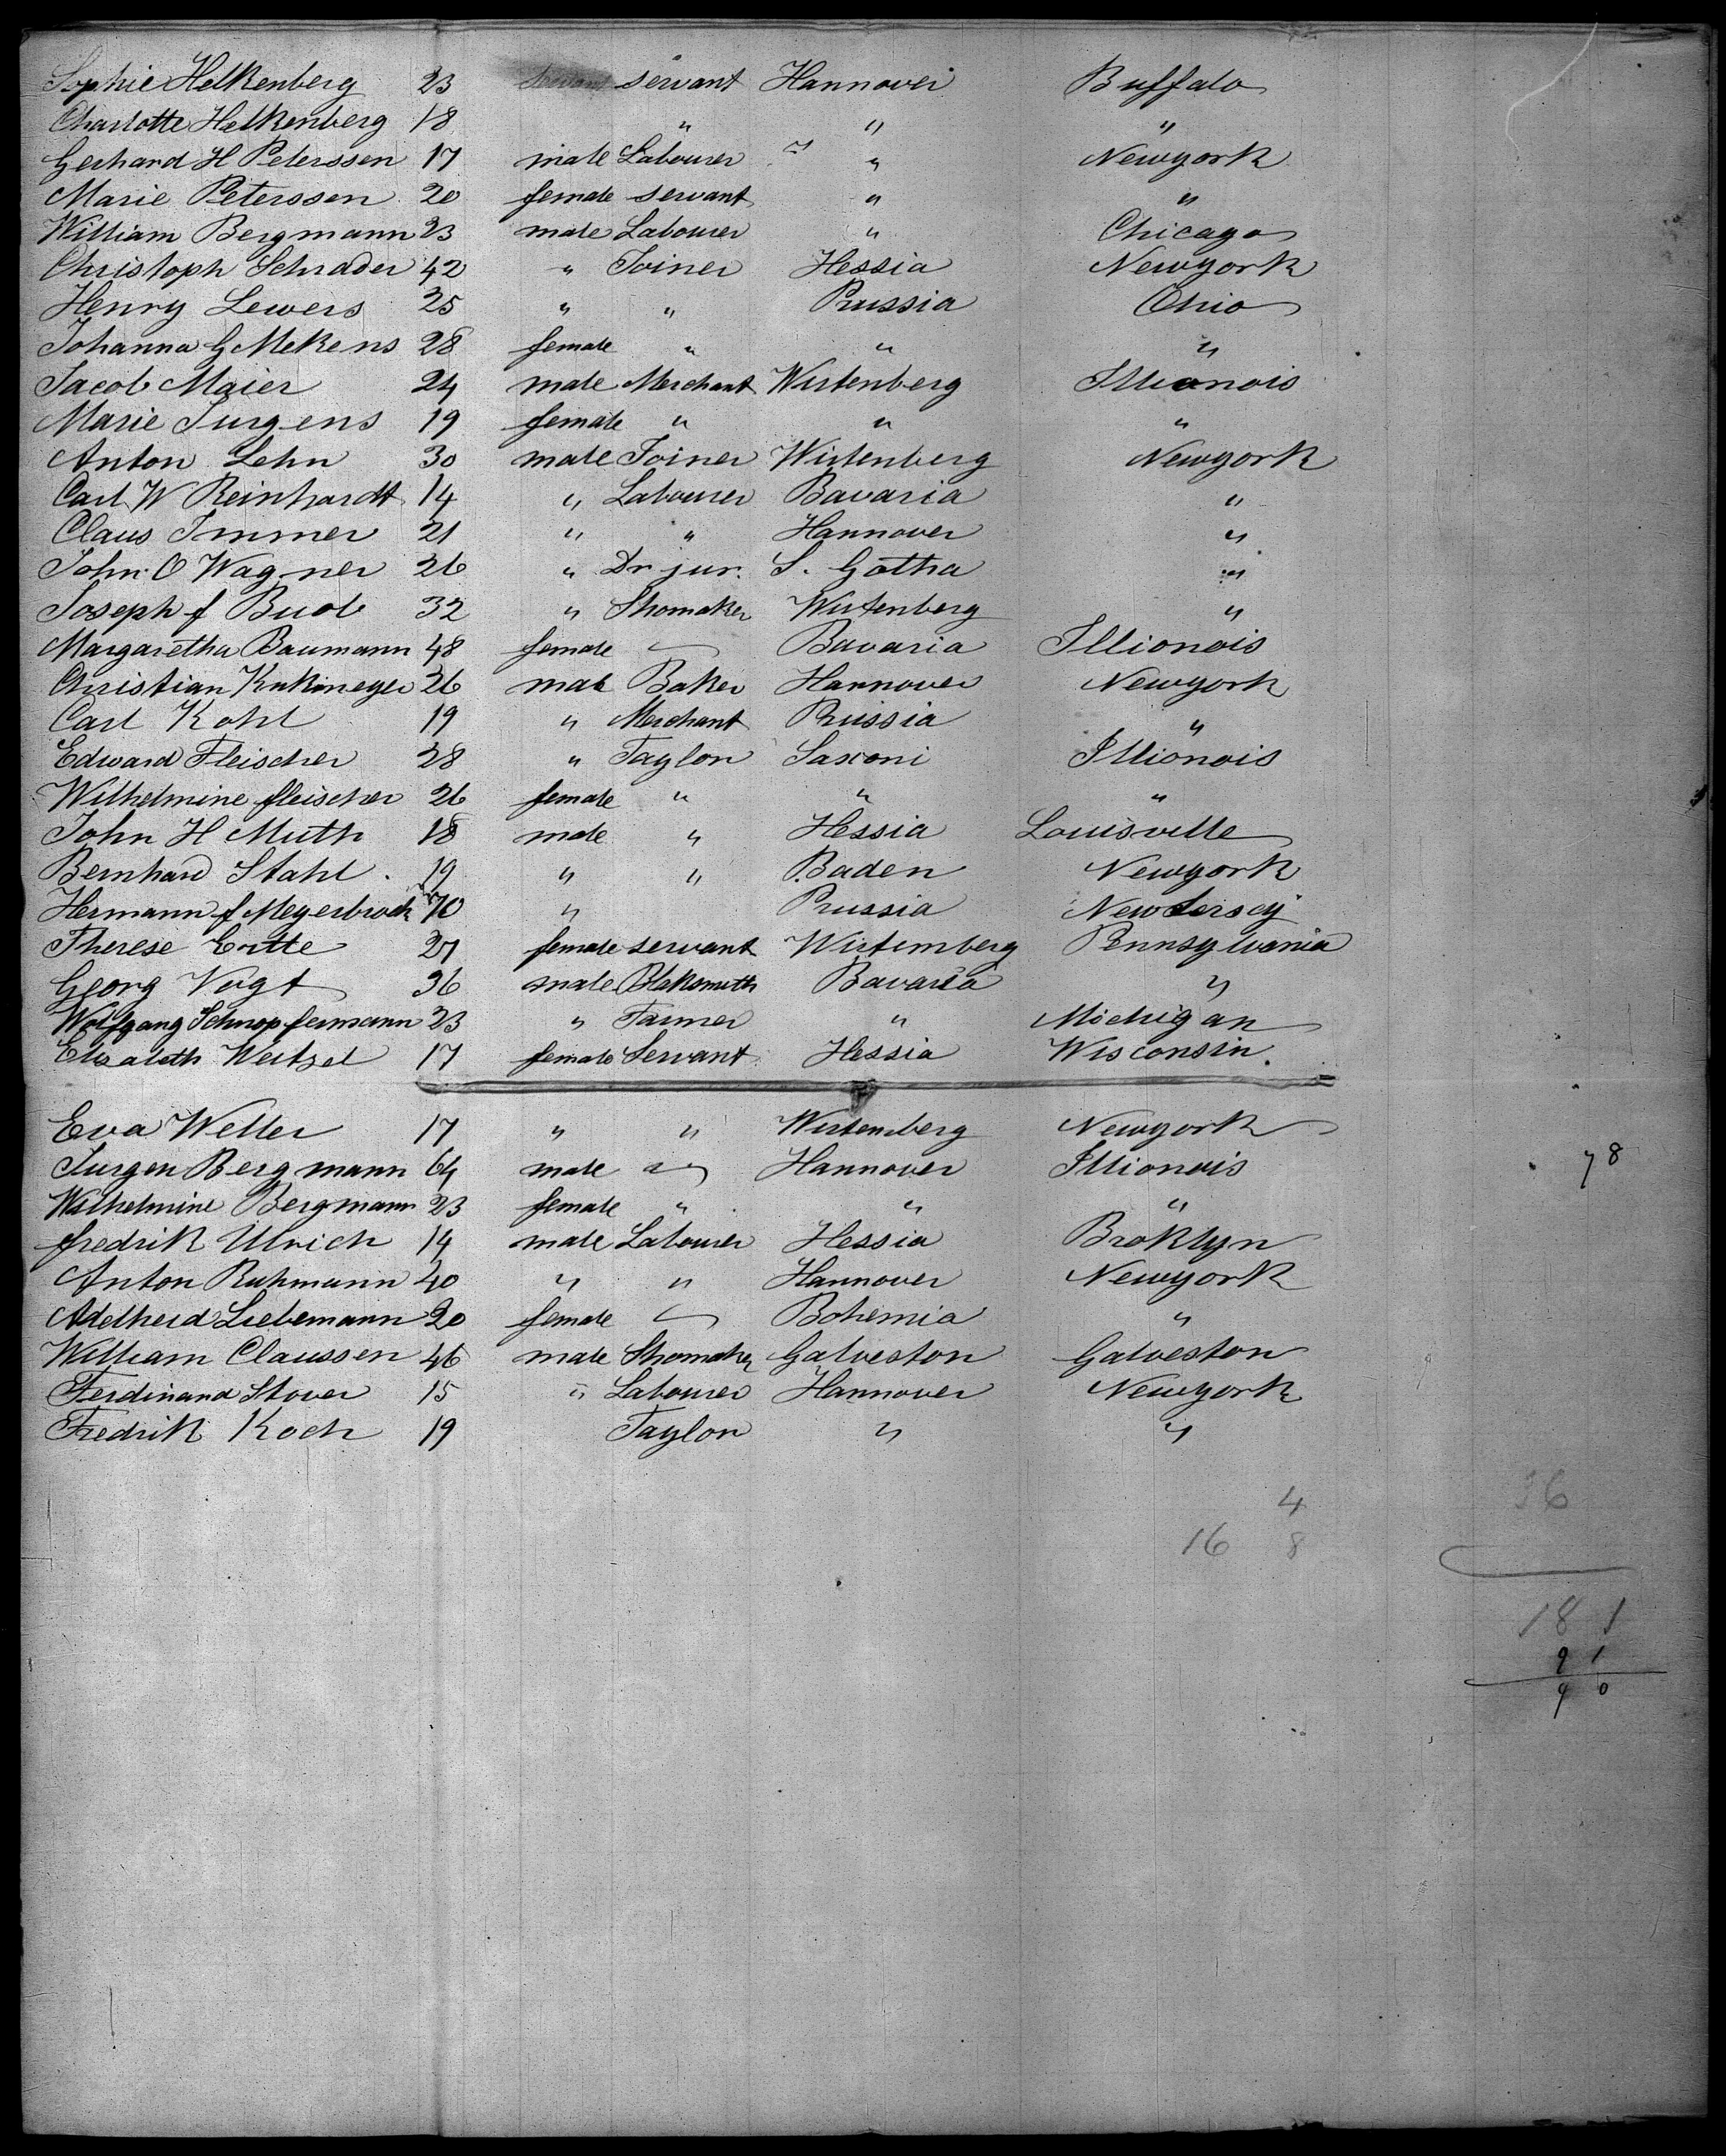 Sophie Helkenberg 23 servant Hannover Buffalo
Charlotte Helkenberg 18 " " "
Gerhard H Peterssen 17 male Labourer " Newyork
Marie Peterssen 20 female servant " "
William Bergmann 23 male Labourer " Chicago
Christoph Schrader 42 " Joiner Hessia Newyork
Henry Lewers 25 " " Prussia Ohio
Johanna G Mekens 28 female " " "
Jacob Maier 24 male Merchant Wirtenberg Illionois
Marie Jurgens 19 female " " "
Anton Lehn 30 male Joiner Wirtenberg Newyork
Carl W Reinhardt 14 " Labourer Bavaria "
Claus Immer 21 " " Hannover "
John O Wagner 26 " Dr jur. S. Gotha "
Joseph f Buob 32 " Shomaker Wirtenberg "
Margaretha Baumann 48 female — Bavaria Illionois
Christian 26 male Baker Hannover Newyork
Carl Kohl 19 " Merchant Prussia "
Edward Fleischer 28 " Taylor Saxoni Illionois
Wilhelmine fleischer 26 female " " "
John H Muth 18 male " Hessia Louisville
Bernhard Stahl 19 " " Baden Newyork
Hermann f Meyerbrock 70 " Prussia New Jersey
Therese Ertte 27 female servant Wirtemberg Pennsylvania
Georg Vogt 36 male Blaksmith Bavaria "
Wolfgang 23 " Farmer " Michigan
Elisabeth Weitzel 17 female Servant Hessia Wisconsin.
Eva Weller 17 " " Wirtemberg Newyork
Jurgen Bergmann 64 male — Hannover Illionois
78
Wilhelmine Bergmann 23 female " " "
fredrik Ulrich 14 male Labourer Hessia Broklyn
Anton Ruhmann 40 " " Hannover Newyork
Adelheid Liebemann 20 female — Bohemia "
William Claussen 46 male Shomaker Galveston Galveston
Ferdinand Stover 15 " Labourer Hannover Newyork
Fredrik Koch 19 Taylor " "
4 36
16 8
181
91
90